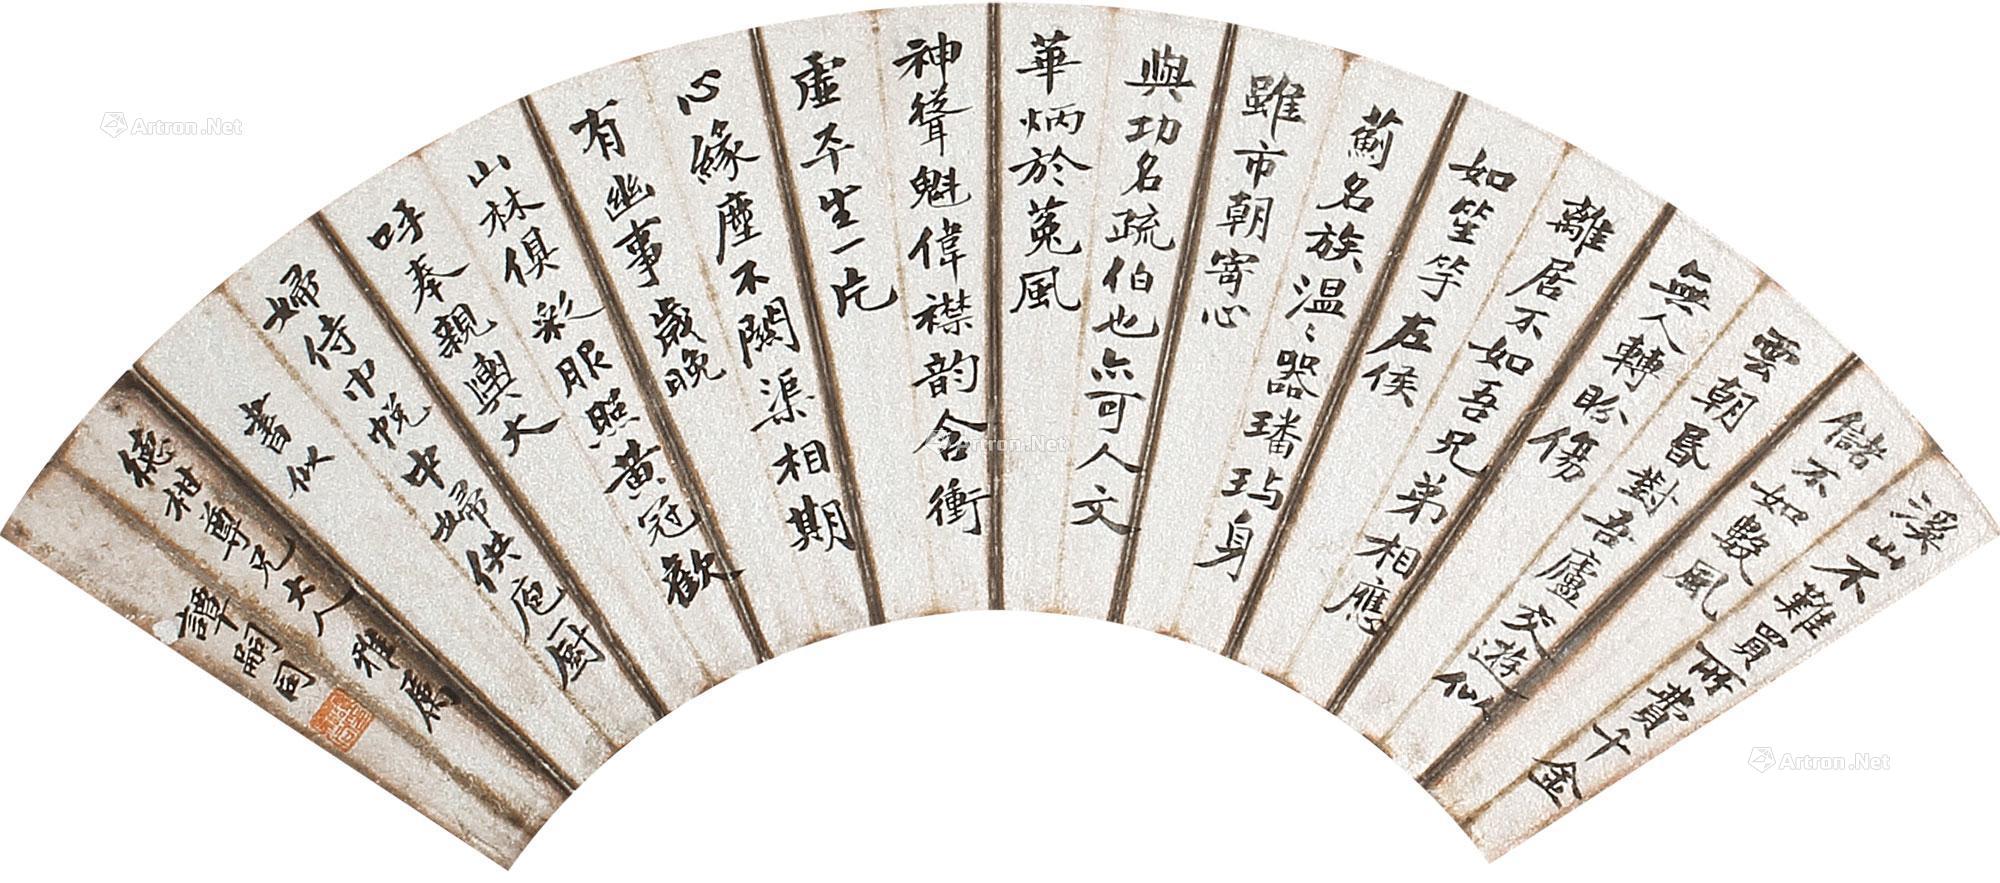 溪山不難買所費千金
儲不如毀風
雲朝昏對吾廬交遊似
無人轉盼傷
離居不如吾兄弟相應
如笙竽左侯
薊名族溫〻器璠玙身
雖市朝寄心
與功名疏伯也亦可人文
華炳於菟風
神聳魁偉襟韵合衝
虛平生一片
心緣塵不關渠相期
有幽事歲晚
山林俱彩服照黃冠歡
呼奉親輿大
婦侍巾帨中婦供庖厨
書似
德柑尊兄大人雅屬
譚嗣同
Artron.Net
Artron.Net
Artron.Net